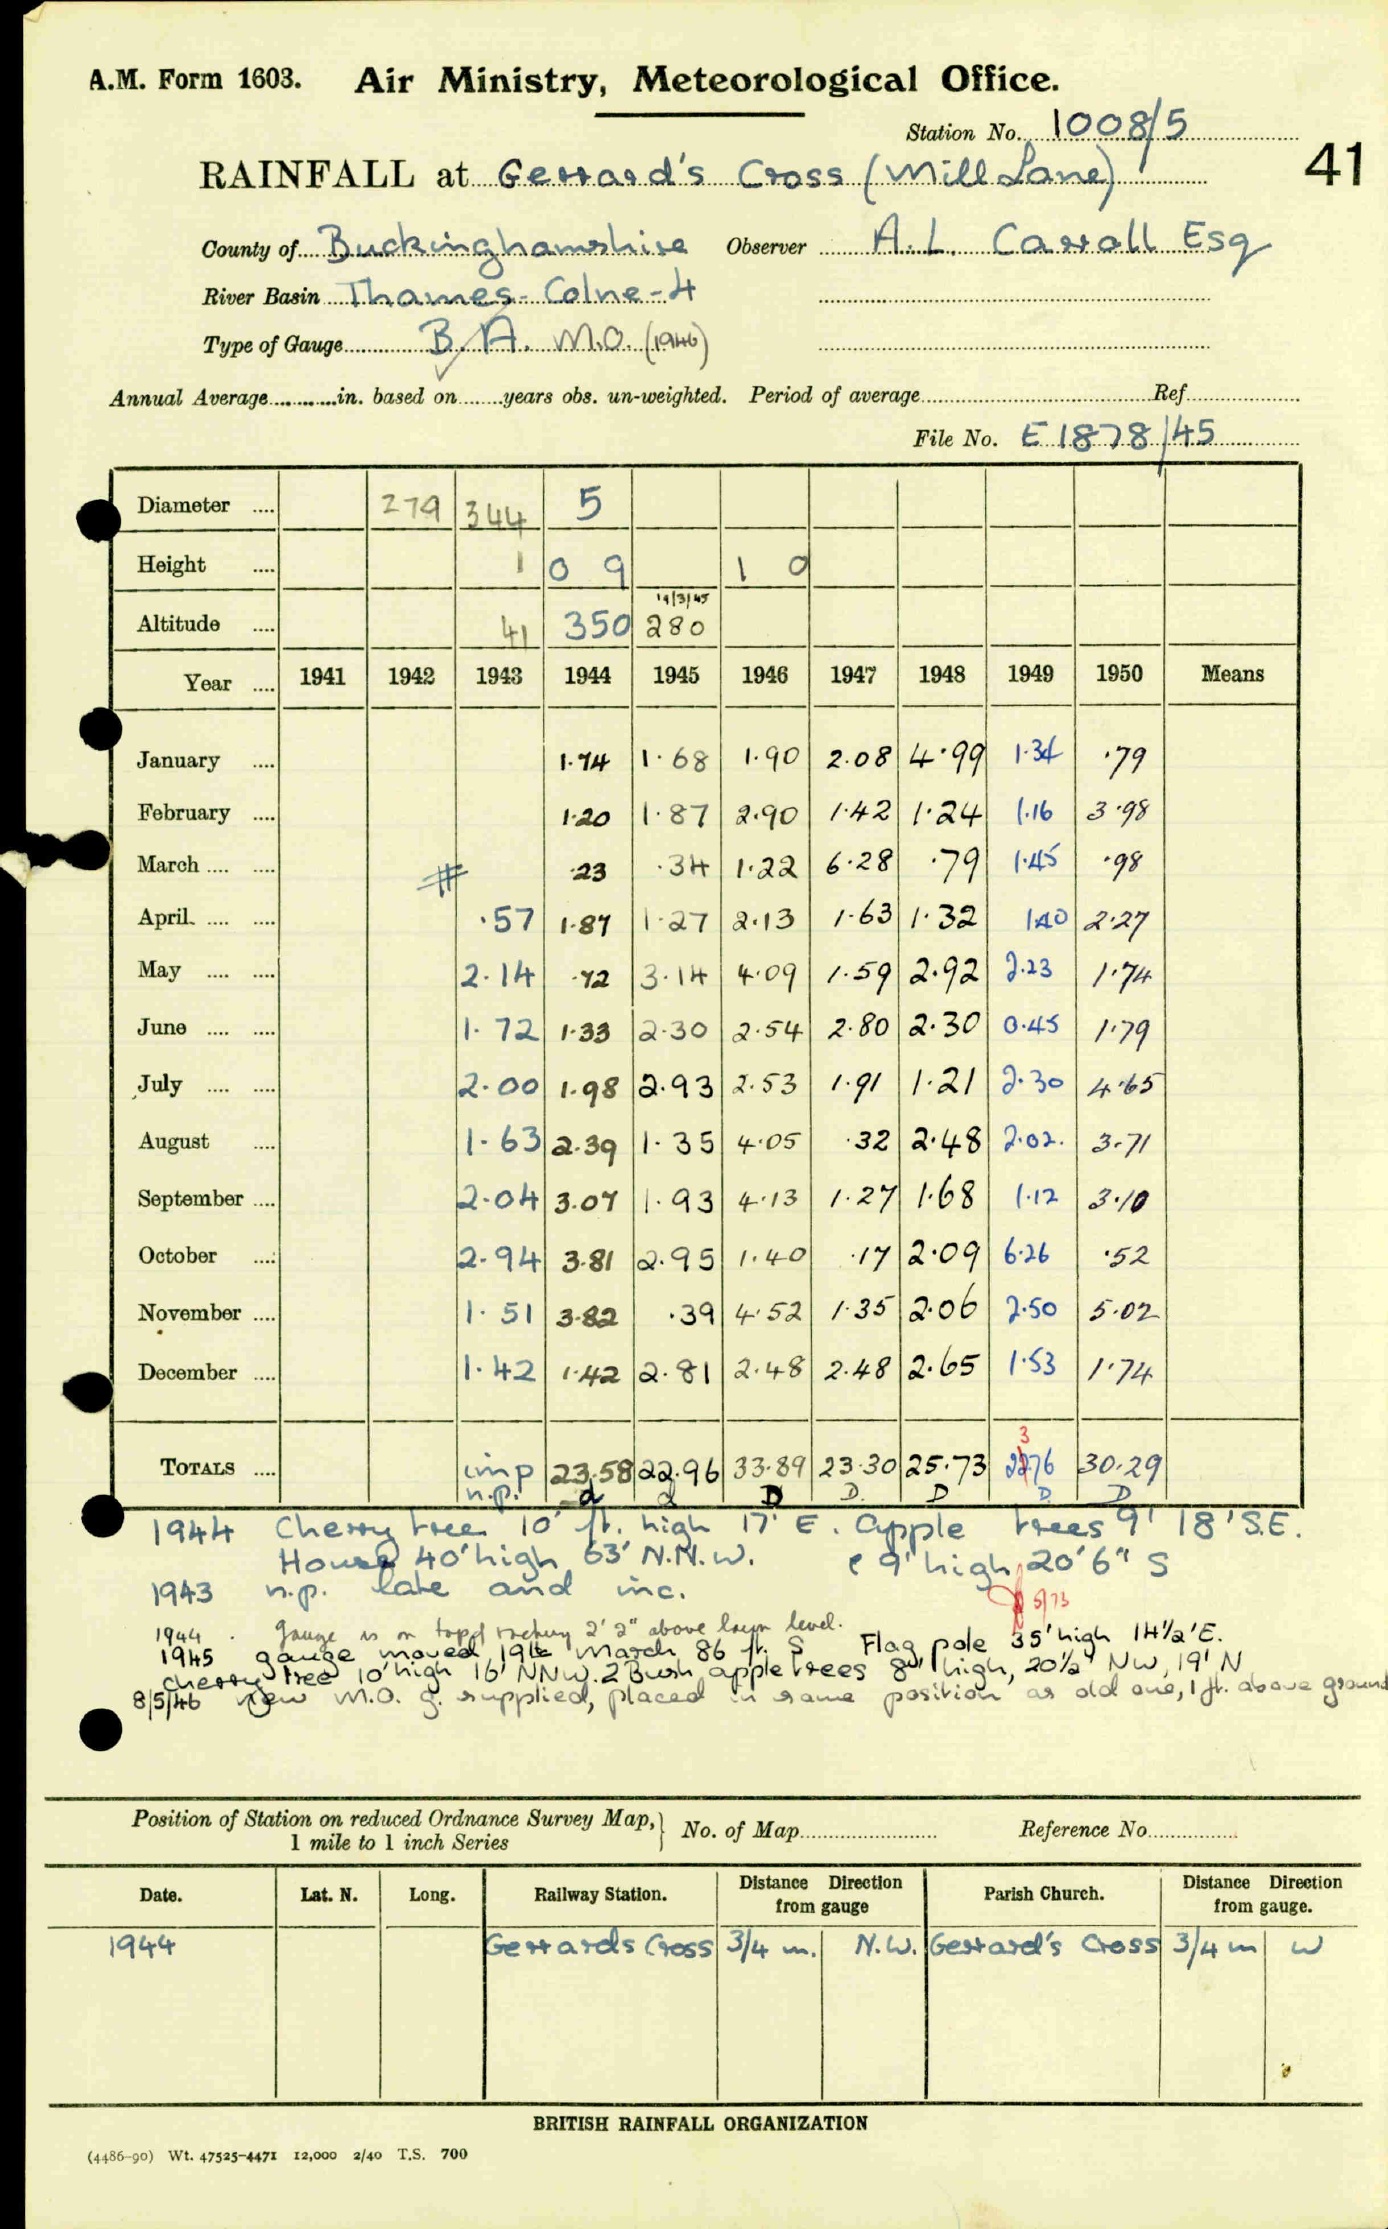 A.M. Form 1603. Air Ministry, Meteorological Office.
Station No. 1008/5
41
RAINFALL at Gerrard's Cross (Mill Lane)
County of Buckinghamshire Observer A. L. Carroll Esq
River Basin Thames - Colne - 4
Type of Gauge B. A. M.O. (1946)
Annual Average in. based on years obs. un-weighted. Period of average Ref
File No. E 1878/45
Diameter 279 344 5
Height 1 0 9 1 0
19/3/45
Altitude 41 350 280
Year 1941 1942 1943 1944 1945 1946 1947 1948 1949 1950 Means
January 1.74 1.68 1.90 2.08 4.99 1.34 .79
February 1.20 1.87 2.90 1.42 1.24 1.16 3.98
March # .23 .34 1.22 6.28 .79 1.45 .98
April .57 1.87 1.27 2.13 1.63 1.32 1.40 2.27
May 2.14 .72 3.14 4.09 1.59 2.92 2.23 1.74
June 1.72 1.33 2.30 2.54 2.80 2.30 0.45 1.79
July 2.00 1.98 2.93 2.53 1.91 1.21 2.30 4.65
August 1.63 2.39 1.35 4.05 .32 2.48 2.02 3.71
September 2.04 3.07 1.93 4.13 1.27 1.68 1.12 3.10
October 2.94 3.81 2.95 1.40 .17 2.09 6.26 .52
November 1.51 3.82 .39 4.52 1.35 2.06 2.50 5.02
December 1.42 1.42 2.81 2.48 2.48 2.65 1.53 1.74
3
TOTALS imp 23.58 22.96 33.89 23.30 25.73 2276 30.29
n.p. d d D D. D D D
1944 Cherry tree 10' ft. high 17' E. apple trees 9' 18' S.E.
House 40' high 63' N.N.W. & 9' high 20' 6" S
1943 n.p. late and inc.
5/73
1944. Gauge is on top of rockery 2' 2" above lawn level.
1945 gauge moved 19th March 86 ft. S Flag pole 35' high 14½' E.
cherry tree 10' high 16' NNW. 2 Bush apple trees 8' high, 20½' NW, 19' N
8/5/46 New M.O. g. supplied, placed in same position as old one, 1 ft. above ground
Position of Station on reduced Ordnance Survey Map, 1 mile to 1 inch Series } No. of Map Reference No.
Date. Lat. N. Long. Railway Station. Distance Direction from gauge Parish Church. Distance Direction from gauge.
1944 Gerrards Cross 3/4 m. N.W. Gerrard's Cross 3/4 m W
BRITISH RAINFALL ORGANIZATION
(4486-90) Wt. 47525-4471 12,000 2/40 T.S. 700